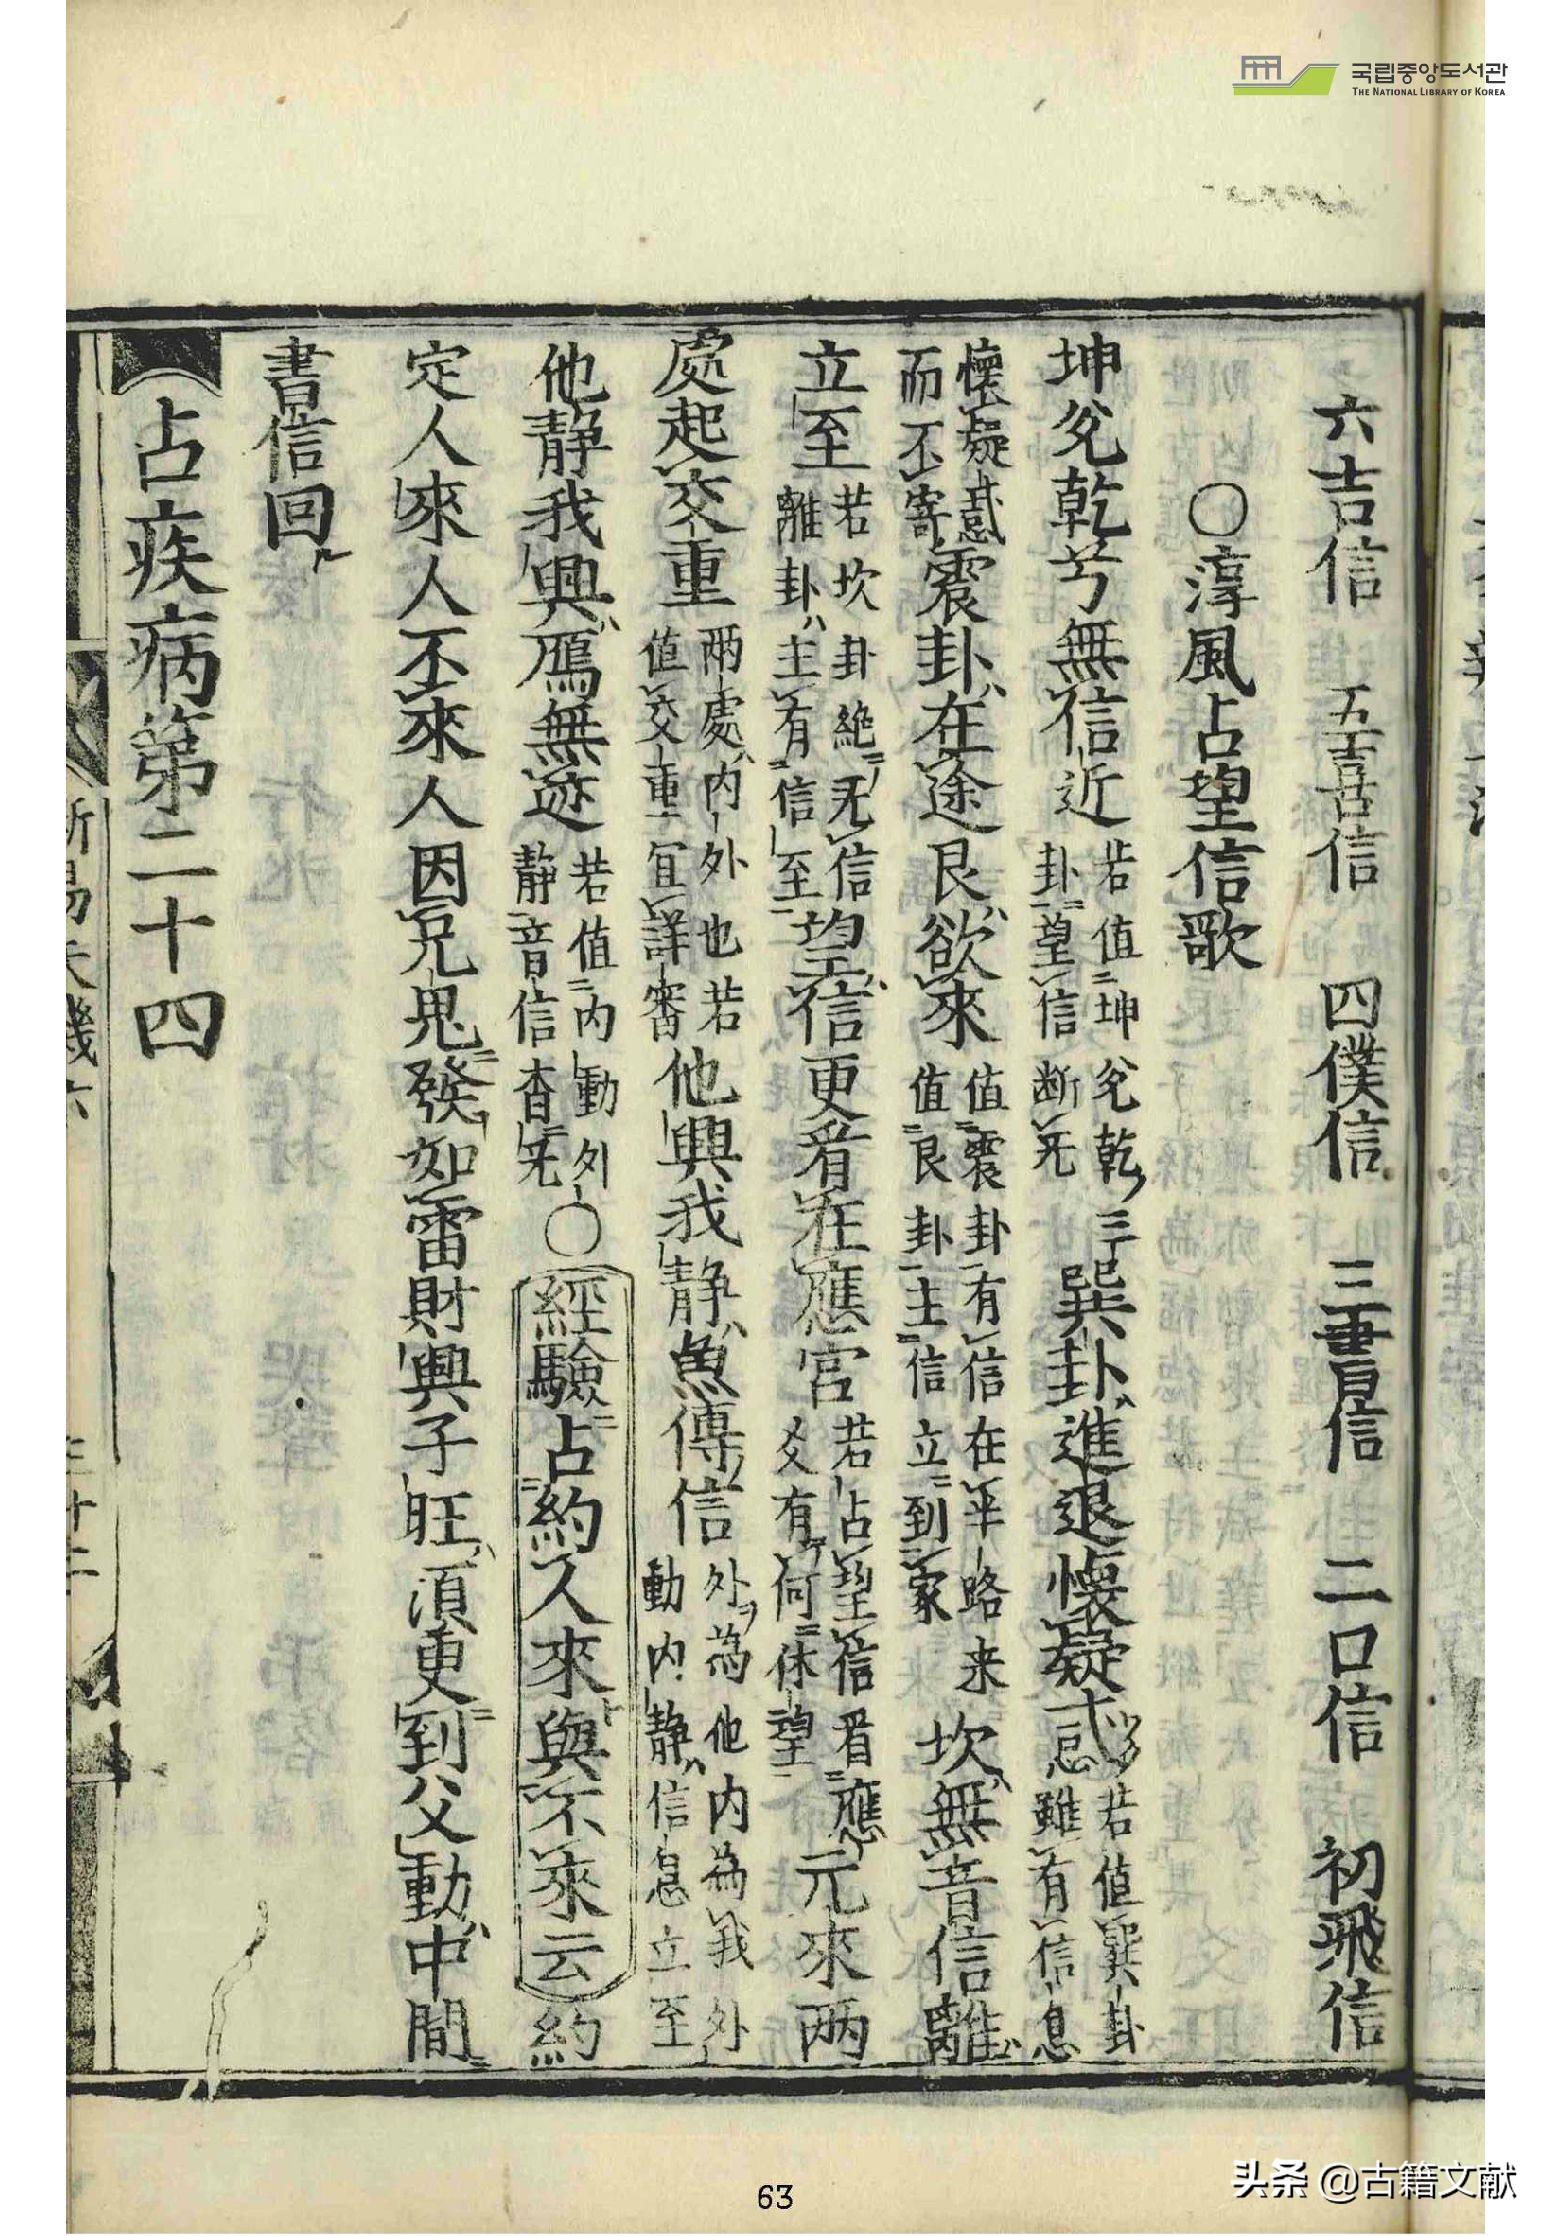 국립중앙도서관
THE NATIONAL LIBRARY OF KOREA
六吉信　五喜信　四僕信　三書信　二口信　初飛信
○淳風占望信歌
坤兊乾兮無信近
若值坤兊乾三
卦望信断无
巽卦進退懷疑惑
若值巽卦
雖有信息
懷疑惑
而不寄
震卦在途艮欲來
值震卦有信在半路来
值艮卦主信立到家
坎無音信離
立至
若坎卦絶无信
離卦主有信至
望信更看在應宮
若占望信看應
爻有何休望
元來兩
處起交重
兩處内外也若
值交重宜詳審
他興我静魚傳信
外為他内為我外
動内静信息立至
他静我興鴈無迹
若值内動外
静音信杳无
○經驗占約人來與不來云約
定人來人不來人因兄鬼發如雷財興子旺須更到父動中間
書信回
占疾病第二十四
新易天機六
三十二
63
头条 @古籍文献